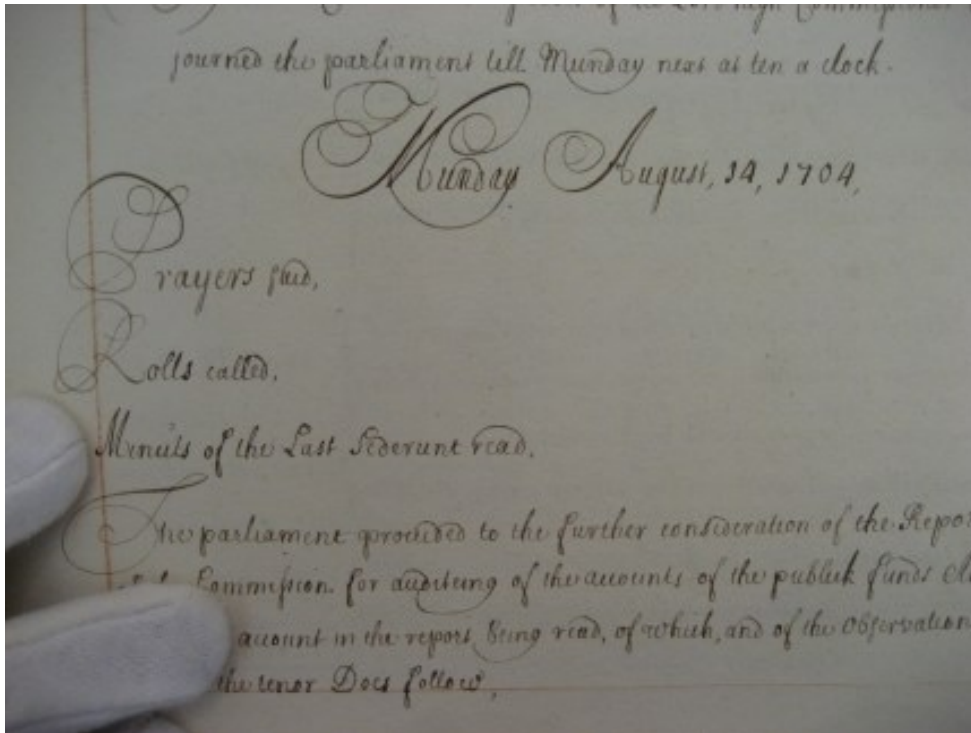 of the Lord high Commissioner
journed the parliament till Munday next at ten a clock.
Munday August, 14, 1704,
Prayers said,
Rolls called,
Minuts of the Last Sederunt read,
The parliament proceided to the further consideration of the Repor
Commission for auditeing of the accounts of the publick funds
account in the report being read, of which, and of the Observation
the tenor Does follow,